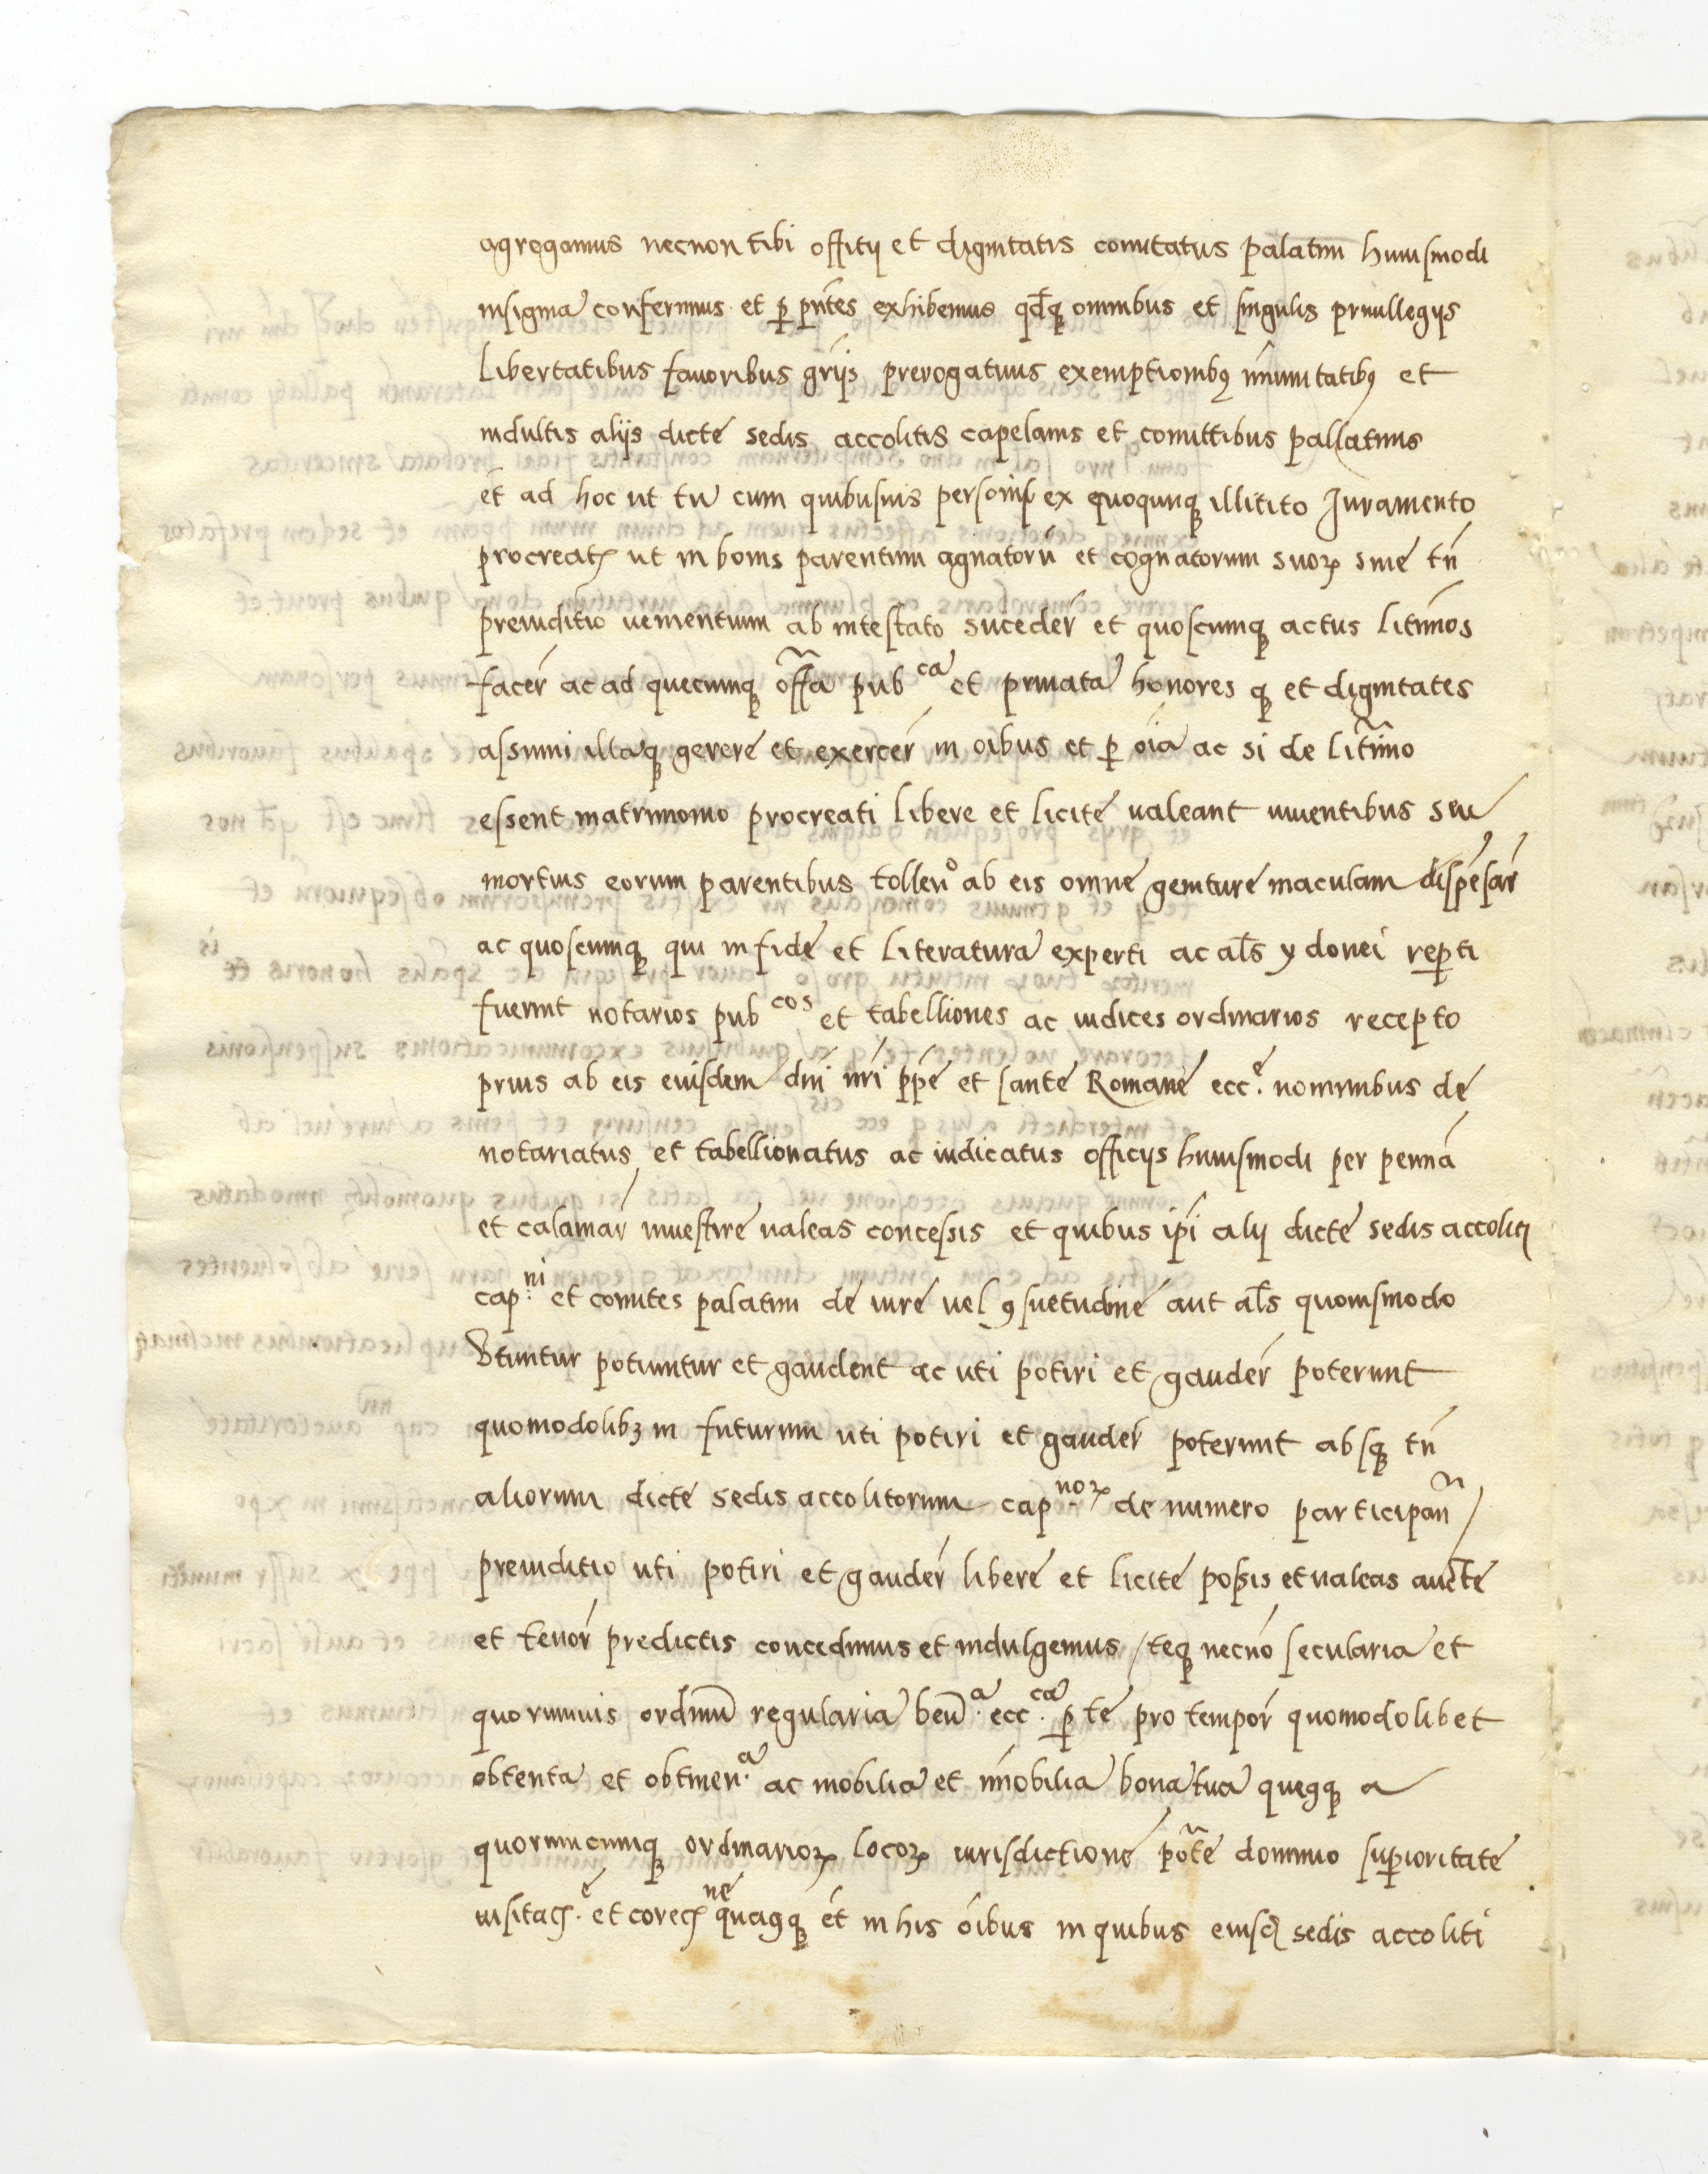 agregamus necnon tibi offitij et dignitatis comitatus palatini huiusmodi
insignia conferimus et ꝑ pñtes exhibemus qd̃q omnibus et singulis priuillegijs
libertatibus fauoribus gr̃ijs prerogatiuis exemptionibꝰ im̃unitatibꝰ et
indultis alijs dicte sedis accolitis capelanis et comittibus pallatinis
et ad hoc ut tu cum quibusuis personis ex quoqunqꝫ illicito Juramento
procreatis ut in bonis parentum agnatorũ et cognatorum suoꝝ sine tñ
preiuditio uenientium ab intestato sucedeř et quoscunqꝫ actus litimos
faceř ac ad quecunqꝫ off̃a pub ca et priuata honores qꝫ et dignitates
assumi illaqꝫ gerere et exerceř in oĩbus et ꝑ oĩa ac si de litĩmo
essent matrimonio procreati libere et licite ualeant uiuentibus seu
mortuis eorum parentibus tolleñº ab eis omne geniture maculam dispẽsař
ac quoscunqꝫ qui in fide et literatura experti ac al̃s ydonei reꝑti
fuerint notarios pub cos et tabelliones ac iudices ordinarios recepto
prius ab eis eiusdem dñi ñri ppẽ et sante Romane ecc.e nominibus de
notariatus et tabellionatus ac iudicatus officijs huiusmodi per pennã
et calamař inuestire ualeas concessis et quibus ipĩ alij dicte sedis accoliti
cap.ni et comites palatini de iure uel ꝯsuetudine aut al̃s quouismodo
Vtuntur potiuntur et gaudent ac uti potiri et gaudeř poterunt
quomodolibꝫ in futurum uti potiri et gaudeř poterunt absqꝫ tñ
aliorum dicte sedis accolitorum cap.noꝝ de numero participañ
preiuditio uti potiri et gaudeř libere et licite possis et ualeas auc̃te
et tenoř predictis concedimus et indulgemus / teqꝫ necnõ secularia et
quorumuis ordinũ regularia beñ.a ecc.ca ꝑ te pro tempoř quomodolibet
obtenta et obtineñ.a ac mobilia et im̃obilia bona tua queqꝫ a
quorumcunqꝫ ordinarioꝝ locoꝝ iurisdictione põte dominio suꝑioritate
uisitac.e et corec ne quaqꝫ et in his oĩbus in quibus eiusd sedis accoliti